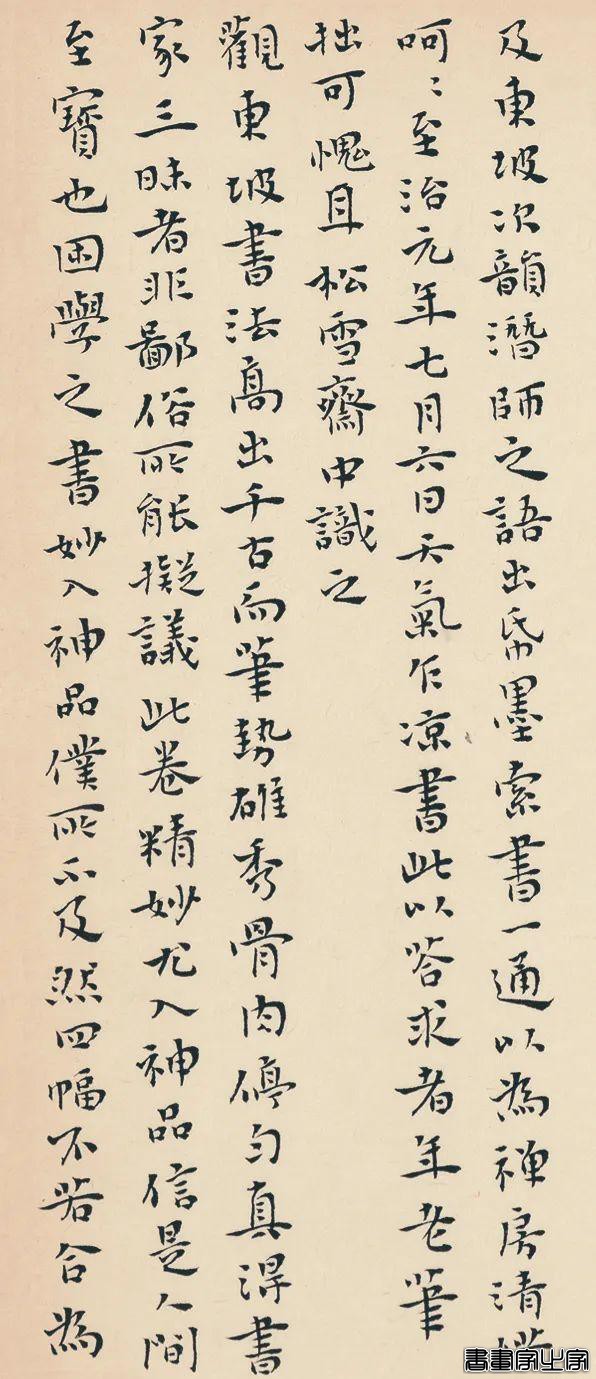 及東坡次韻潛師之語出帋墨索書一通以為禪房清供
呵〻至治元年七月六日天氣乍凉書此以荅求者年老筆
拙可愧且松雪齋中識之
觀東坡書法高出千古而筆勢雄秀骨肉停勻真得書
家三昧者非鄙俗所能擬議此卷精妙尤入神品信是人間
至寶也困學之書妙入神品僕所不及然四幅不若合為
書畫家必字